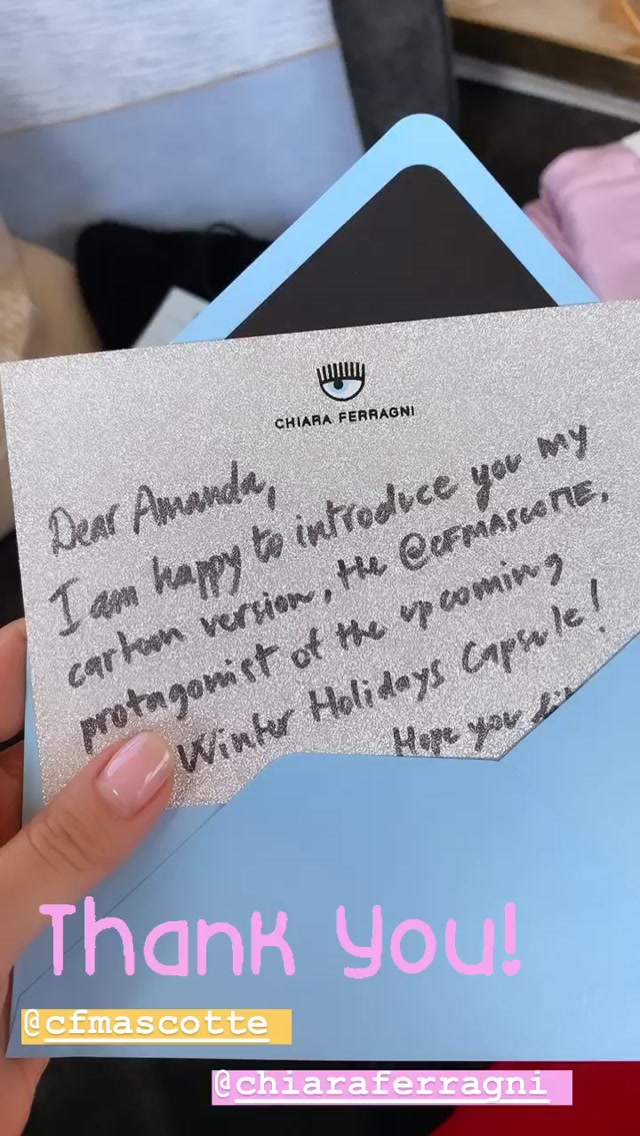 CHIARA FERRAGNI
Dear Amanda,
I am happy to introduce you my
cartoon version, the @CFMASCOTTE,
protagonist of the upcoming
Winter Holidays Capsule!
Hope you
Thank You!
@cfmascotte
@chiaraferragni